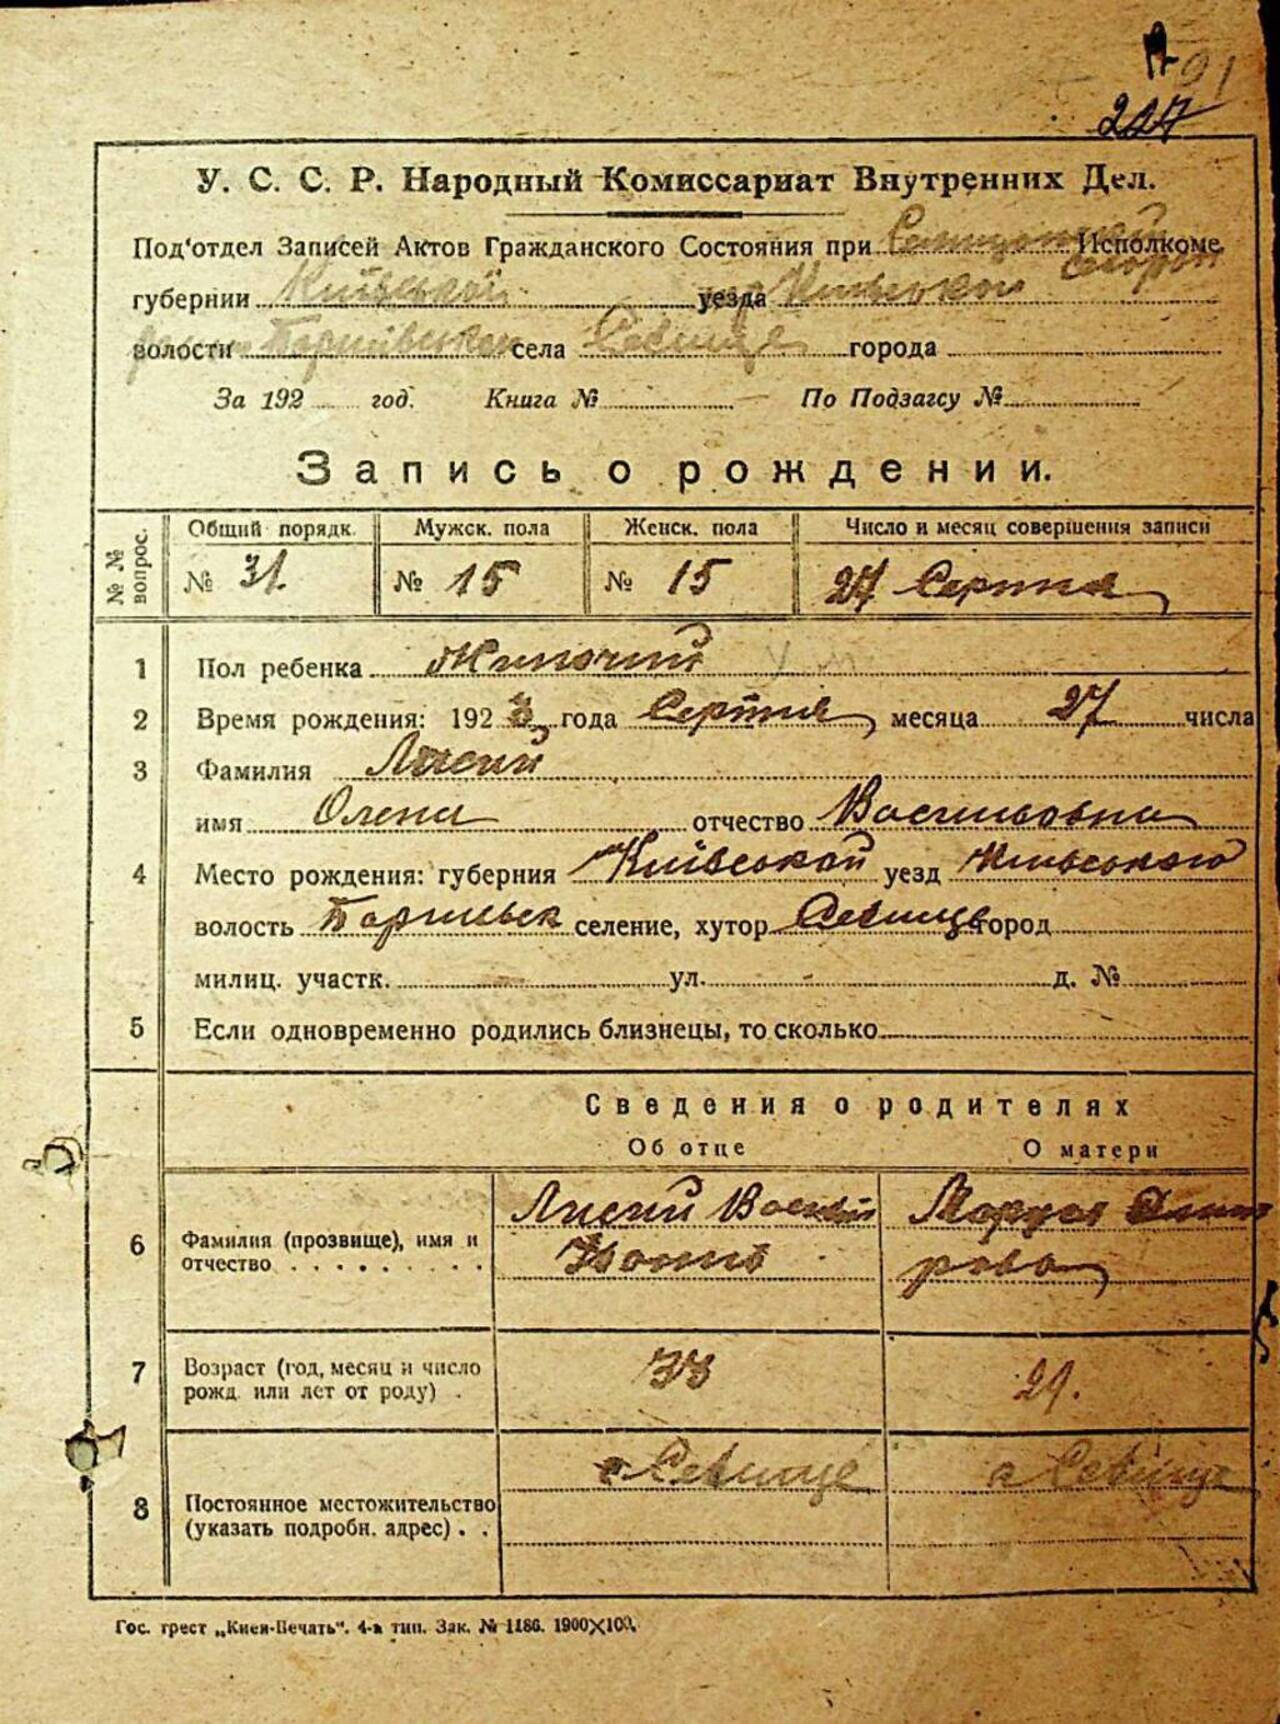 91
227
У. С. С. Р. Народный Комиссариат Внутренних Дел.
Под'отдел Записей Актов Гражданского Состояния при Исполкоме
губернии Київської уезда Київської
волости села города
За 192 год. Книга № По Подзагсу №
Запись о рождении.
№ № вопрос. Общий порядк. Мужск. пола Женск. пола Число и месяц совершения записи
№ 31. № 15 № 15 27 Серпня
1 Пол ребенка Жиночий
2 Время рождения: 192 3 года Серпня месяца 27 числа
3 Фамилия Лисий
имя Олена отчество Васильовна
4 Место рождения: губерния Київськой уезд Київського
волость селение, хутор город
милиц. участк. ул. д. №
5 Если одновременно родились близнецы, то сколько
Сведения о родителях
Об отце О матери
6 Фамилия (прозвище), имя и отчество Лисий Василь Маруся
7 Возраст (год, месяц и число рожд. или лет от роду) 33 29.
8 Постоянное местожительство (указать подробн. адрес)
Гос. трест „Киев-Печать". 4-я тип. Зак. № 1186. 1900×100.